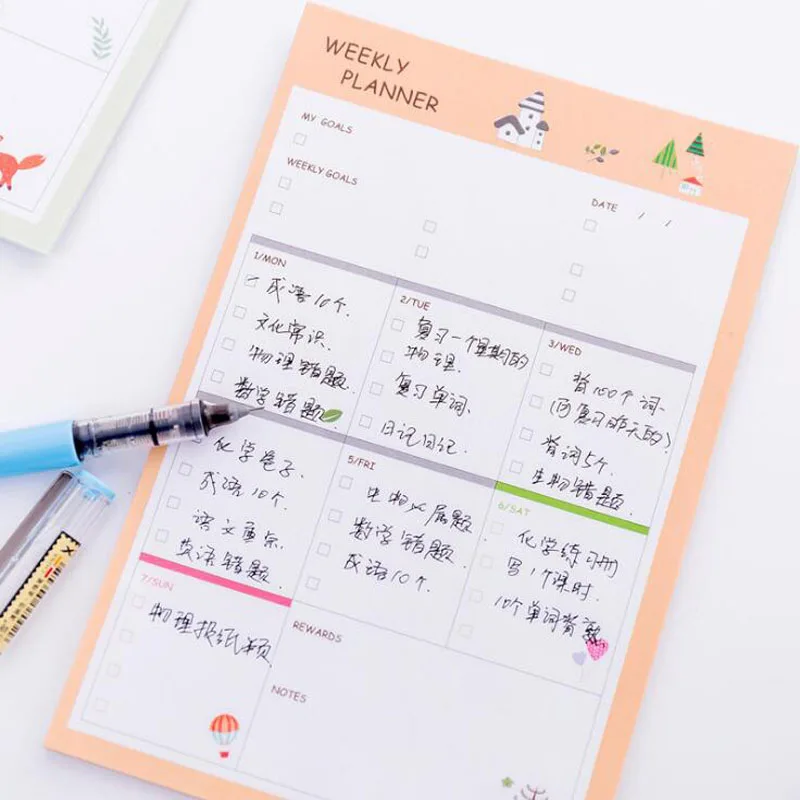 WEEKLY
PLANNER
MY GOALS
WEEKLY GOALS
DATE / /
1/MON
成语10个.
文化常识.
物理错题.
数学错题
2/TUE
复习一个星期的
物理.
复习单词.
日记日记.
3/WED
背100个词.
(可复习昨天的)
背词5个.
生物错题.
化学卷子.
成语10个.
语文重点.
英语错题.
5/FRI
生物必属题
数学错题.
成语10个.
6/SAT
化学练习册
写1个课时.
10个单词背
7/SUN
物理报纸
REWARDS
NOTES